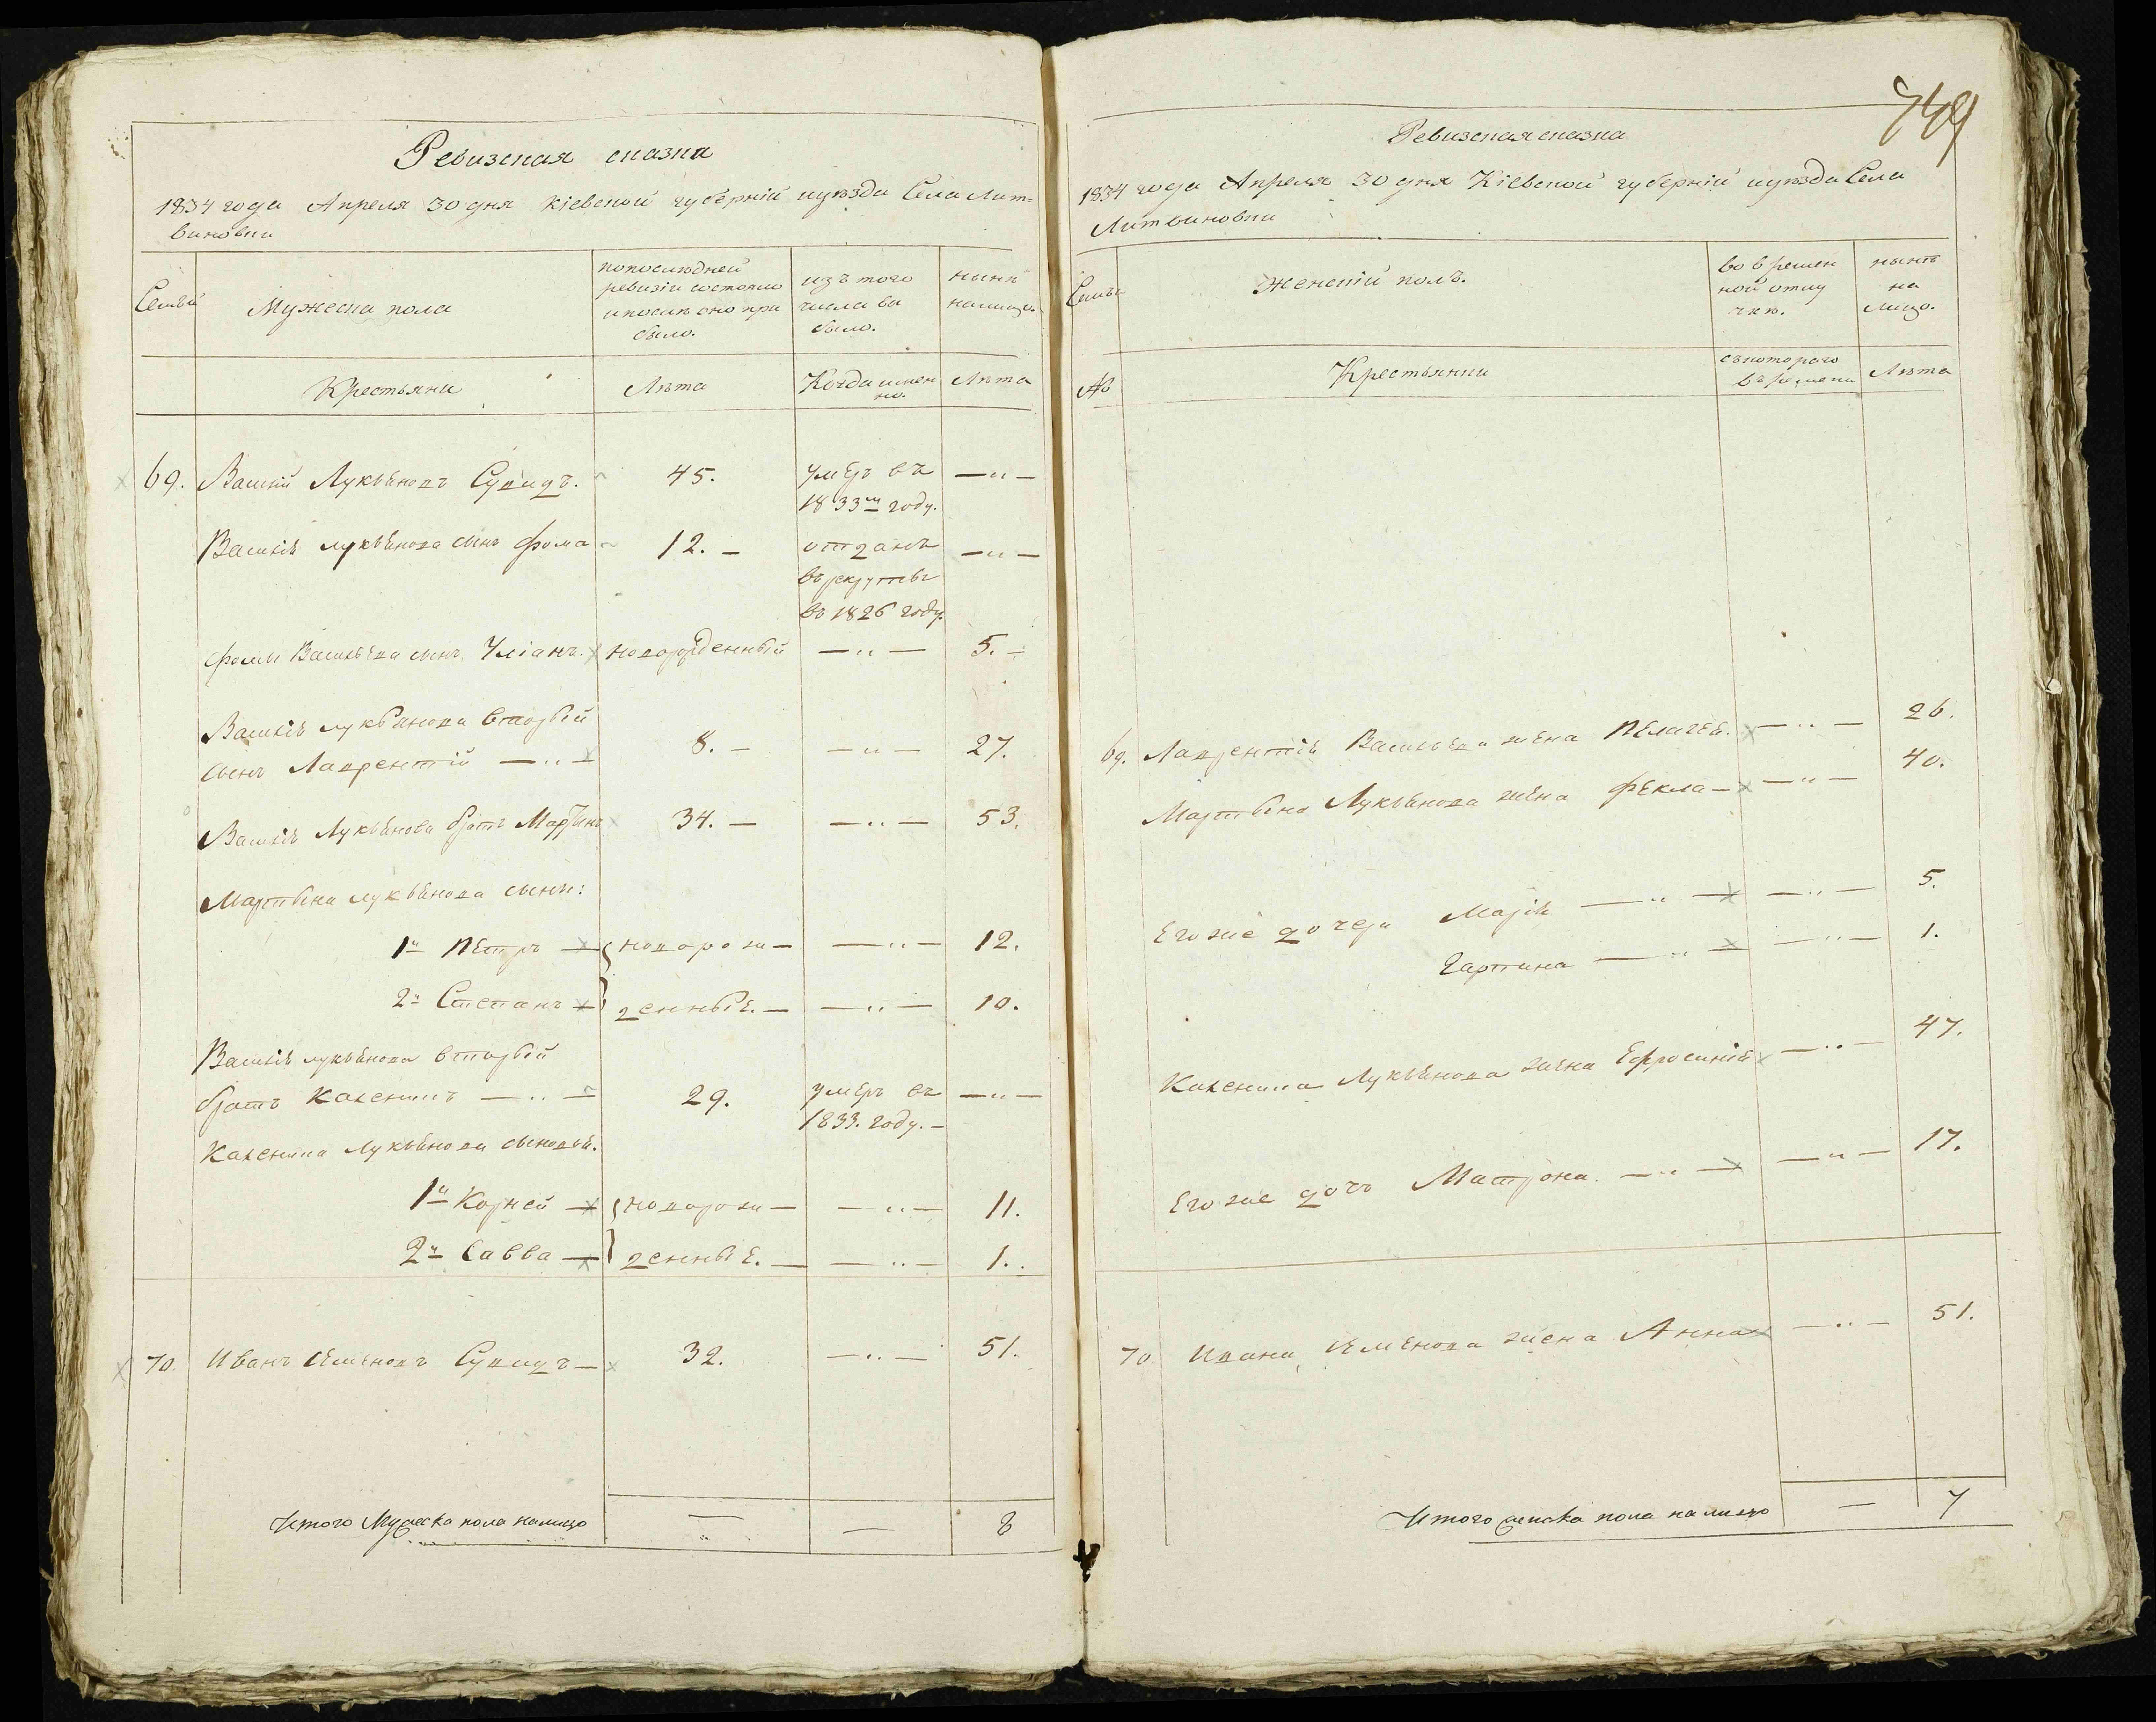 Ревизская сказка
1834 года Апреля 30 дня Кіевской губерній иуѣзда Села Лит=
виновки
Семьи
Мужеска пола
попослѣдней
ревизіи состояло
ипослѣ оно при
было.
изъ того
числа вы
было.
нынѣ
налицо.
Крестьяни
Лѣта
Когда имен
но.
Лѣта
69. Василій Лукьяновъ 45. умеръ въ —"—
1833м году.
Василія лукьянова сынъ фома 12. — отданъ —"—
въ рекруты
въ 1826 году.
фомы Васильева сынъ Уліанъ. новорожденный —"— 5. —
Василія лукьянова вторый
сынъ Лаврентій —"— 8. — —"— 27.
Василія Лукьянова братъ Мартынъ 34. — —"— 53.
Мартына лукьянова сыни:
1й Петръ — новорож— —"— 12.
2й Степанъ — денные. — —"— 10.
Василія лукьянова вторый
братъ Каленикъ —"— 29. умеръ въ —"—
1833. году. —
Каленика Лукьянова сыновья.
1й Корней — новорож— —"— 11.
2й Савва — денные. — —"— 1.
70. Иванъ Семеновъ — 32. —"— 51.
Итого Мужеска пола налицо — — 8
749
Ревизская сказка
1834 года Апреля 30 дня Кіевской губерній иуѣзда Села
Литвиновки
Семьи
Женскій полъ.
во времен
ной отлу
чкѣ.
нынѣ
на
лицо.
№
Крестьянки
съкотораго
въремени
Лѣта
69. Лаврентія Васильева жена Пелагея. —"— 26.
Мартына Лукьянова жена Фекла — —"— 40.
Егоже дочери Марія —"— —"— 5.
—"— —"— 1.
Каленика Лукьянова жена Ефросинія —"— 47.
Егоже дочь Матрона. —"— —"— 17.
70 Ивана Семенова жена Анна —"— 51.
Итого женска пола налицо — 7